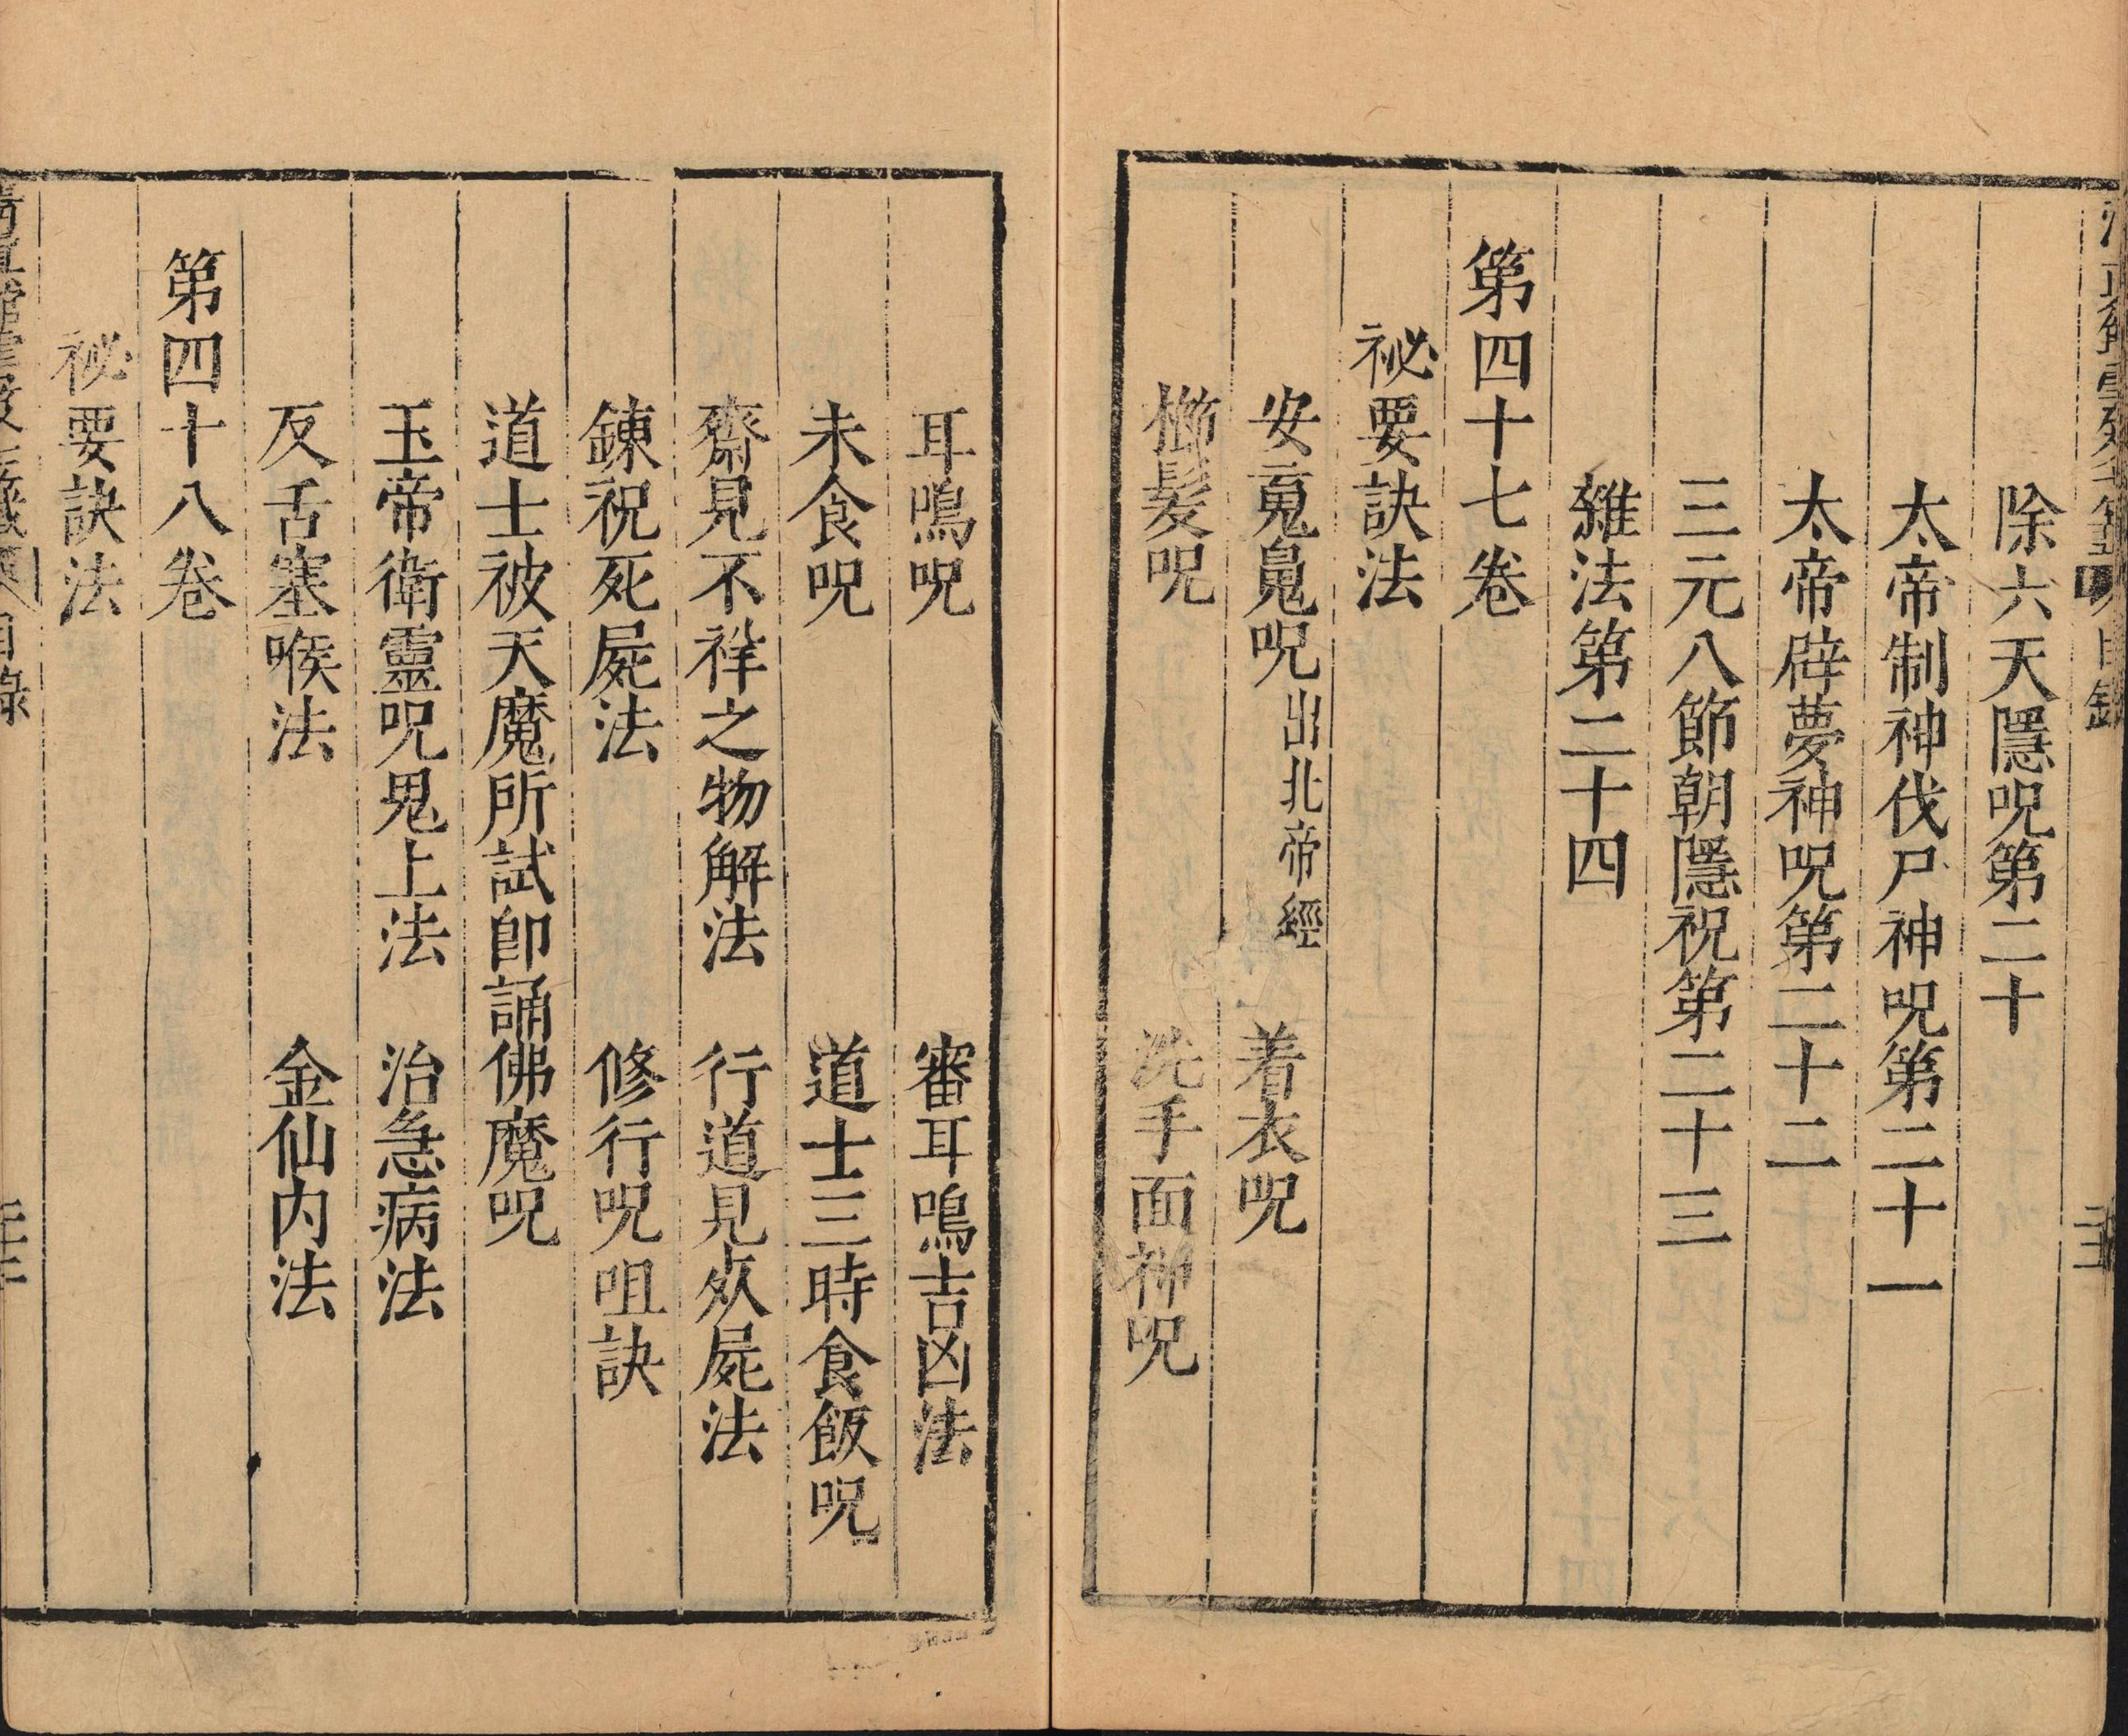 除六天隱呪第二十
太帝制神伐尸神呪第二十一
太帝辟夢神呪第二十二
三元八節朝隱祝第二十三
雜法第二十四
第四十七卷
祕要訣法
安䰟䰠呪出北帝經　着衣呪
櫛髮呪　洗手面神呪
耳鳴呪　審耳鳴吉凶法
未食呪　道士三時食飯呪
齋見不祥之物解法　行道見死屍法
錬祝死屍法　修行呪咀訣
道士被天魔所試卽誦佛魔呪
玉帝衛靈呪鬼上法　治急病法
反舌塞喉法　金仙内法
第四十八卷
祕要訣法
目錄